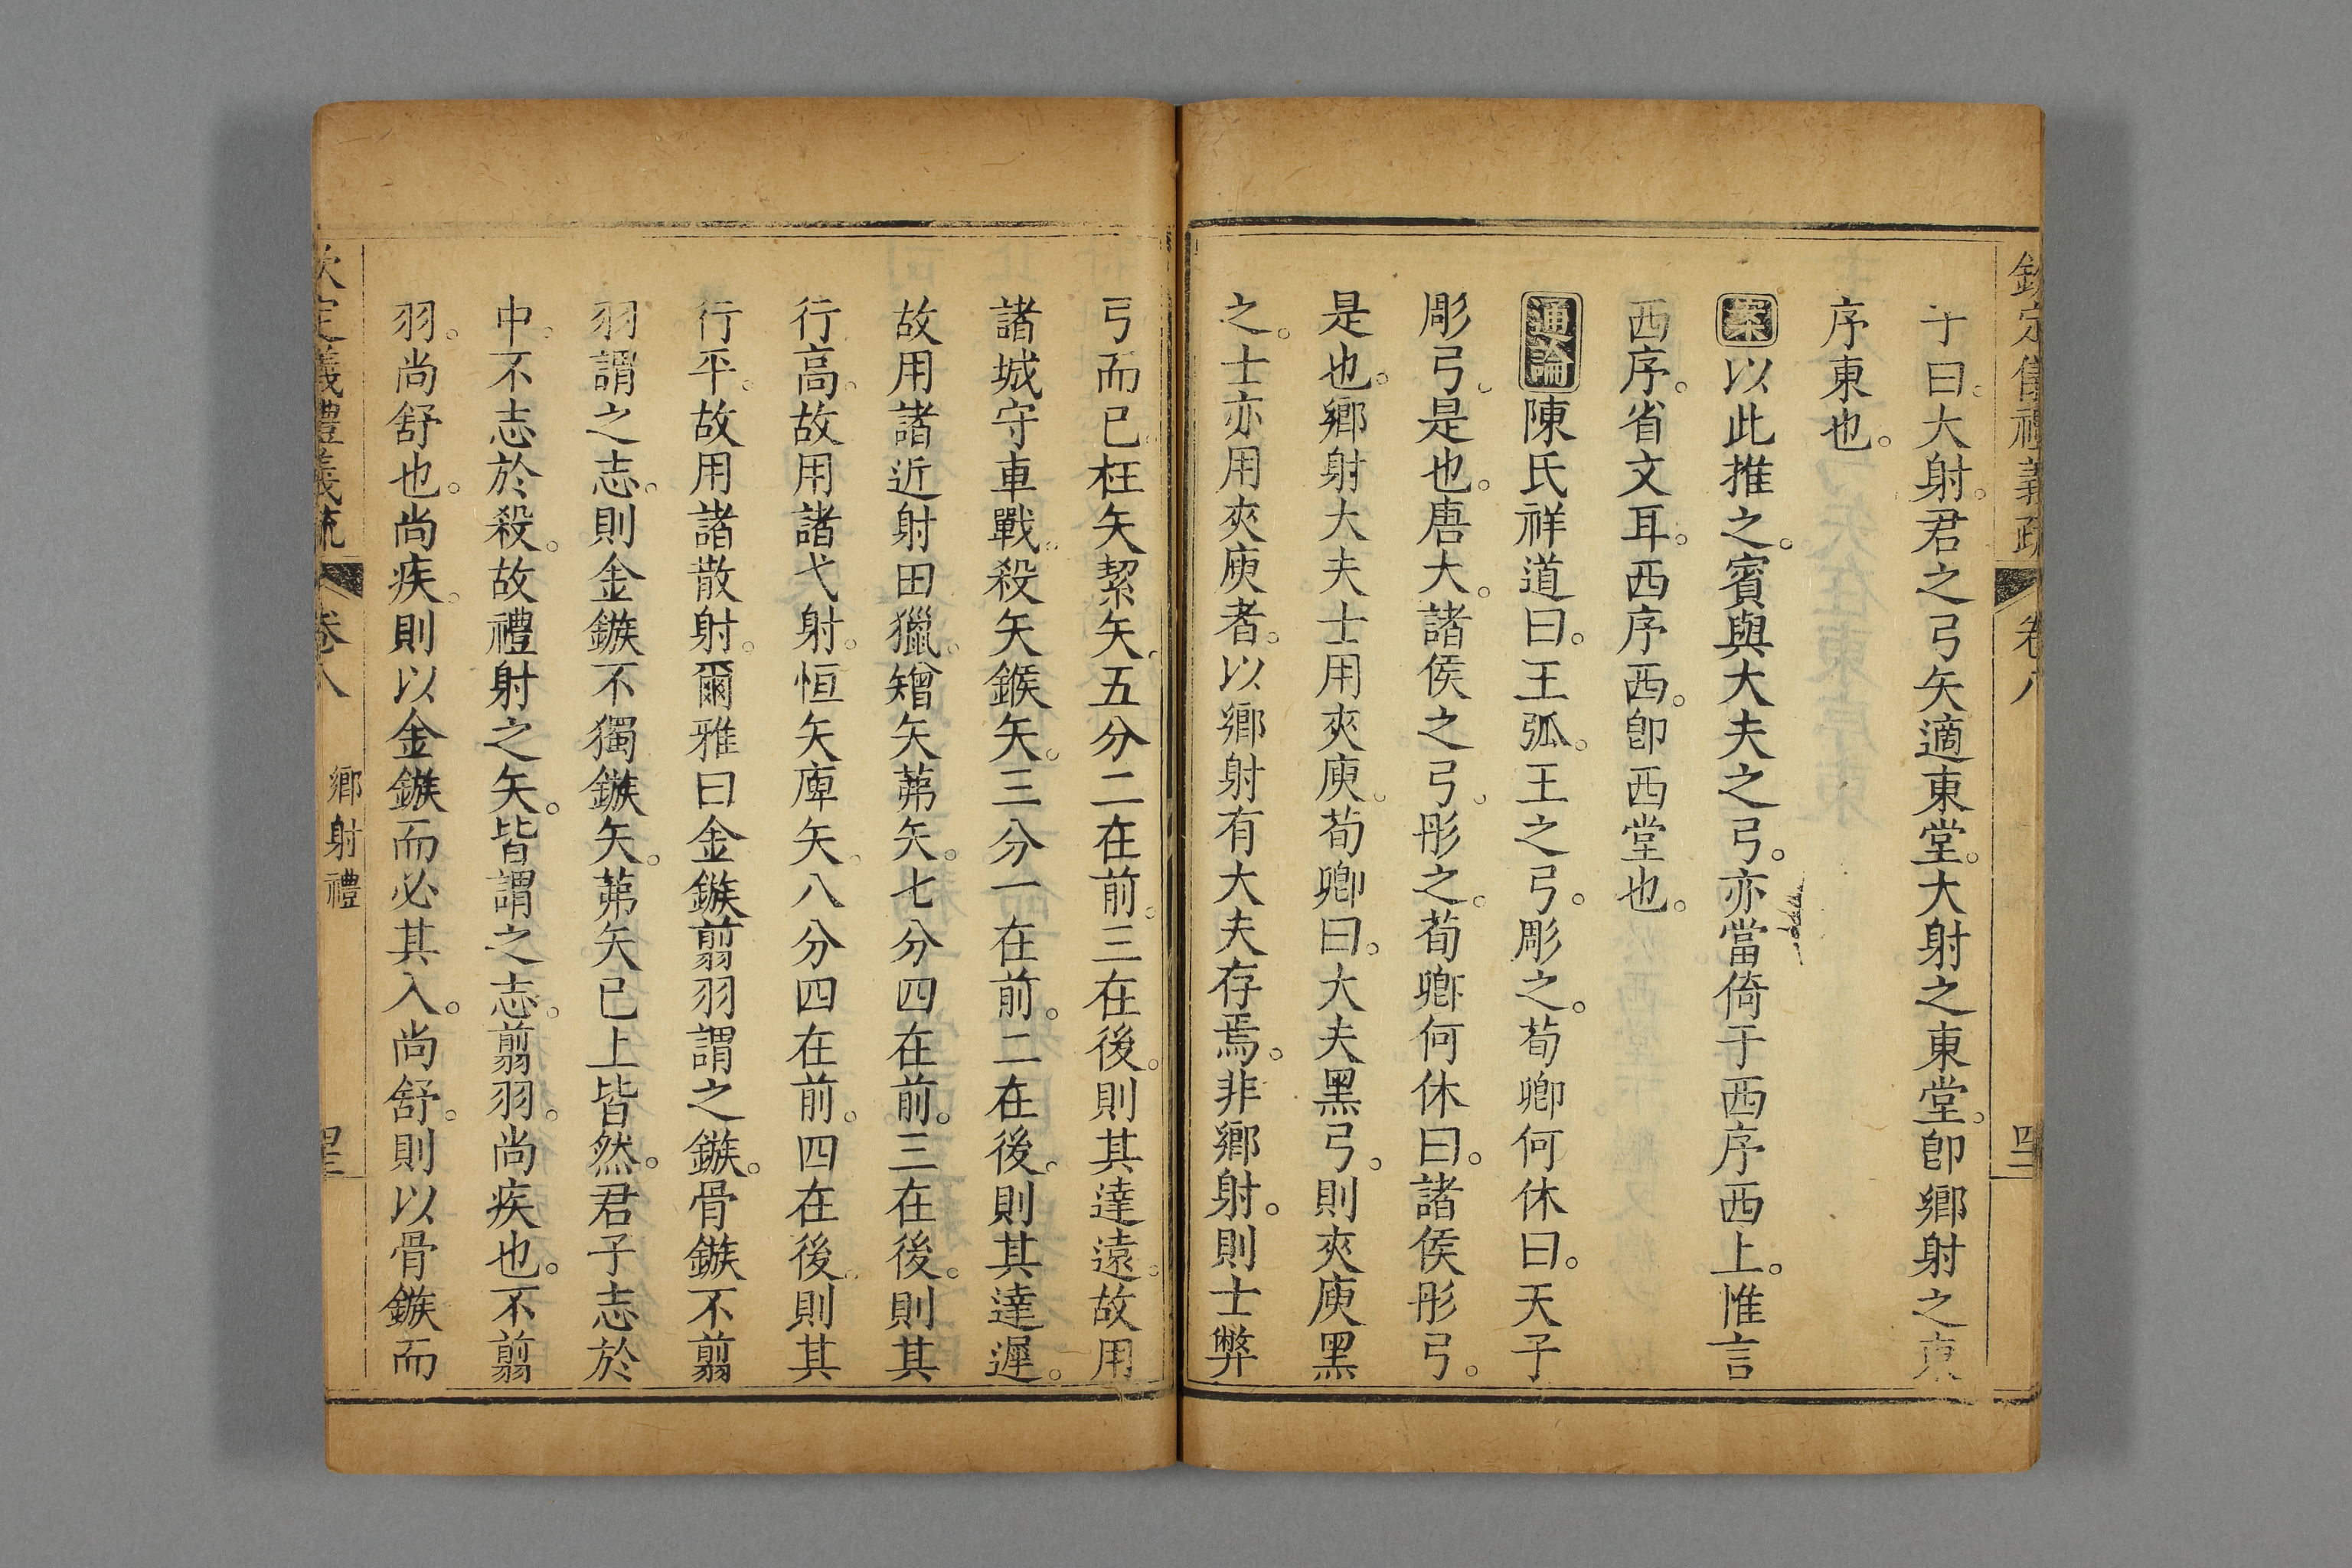 欽定儀禮義疏 卷八 四二
于曰。大射。君之弓矢適東堂。大射之東堂。卽鄉射之東
序東也。
案以此推之。賓與大夫之弓。亦當倚于西序西上。惟言
西序。省文耳。西序西。卽西堂也。
通論陳氏祥道曰。王弧。王之弓。彫之。荀卿何休曰。天子
彫弓。是也。唐大。諸侯之弓。彤之。荀卿何休曰。諸侯彤弓。
是也。鄉射大夫士用夾庾。荀卿曰。大夫黑弓。則夾庾黑
之。士亦用夾庾者。以鄉射有大夫存焉。非鄉射。則士弊
弓而已。枉矢絜矢。五分二在前。三在後。則其達遠。故用
諸城守車戰。殺矢鍭矢。三分一在前。二在後。則其達遲。
故用諸近射田獵。矰矢茀矢。七分四在前。三在後。則其
行高。故用諸弋射。恒矢庳矢。八分四在前。四在後。則其
行平。故用諸散射。爾雅曰金鏃翦羽謂之鏃。骨鏃不翦
羽謂之志。則金鏃不獨鏃矢。茀矢已上皆然。君子志於
中。不志於殺。故禮射之矢。皆謂之志。翦羽。尚疾也。不翦
羽。尚舒也。尚疾。則以金鏃而必其入。尚舒。則以骨鏃而
欽定儀禮義疏 卷八 鄉射禮